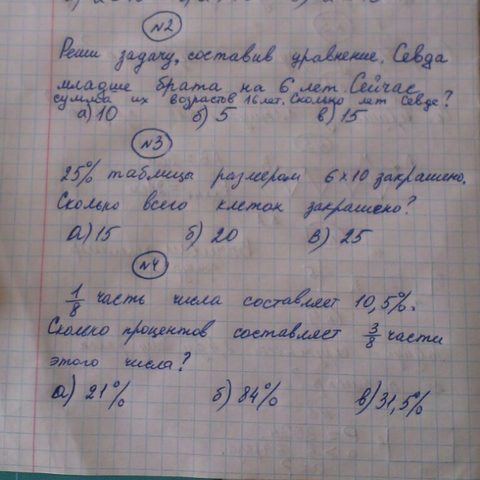 №2
Реши задачу, составив уравнение. Севда
младше брата на 6 лет. Сейчас
сумма их возрастов 16 лет. Сколько лет Севде?
а) 10 б) 5 в) 15
№3
25% таблицы размером 6×10 закрашено.
Сколько всего клеток закрашено?
а) 15 б) 20 в) 25
№4
1/8 часть числа составляет 10,5%.
Сколько процентов составляет 3/8 части
этого числа?
а) 21% б) 84% в) 31,5%